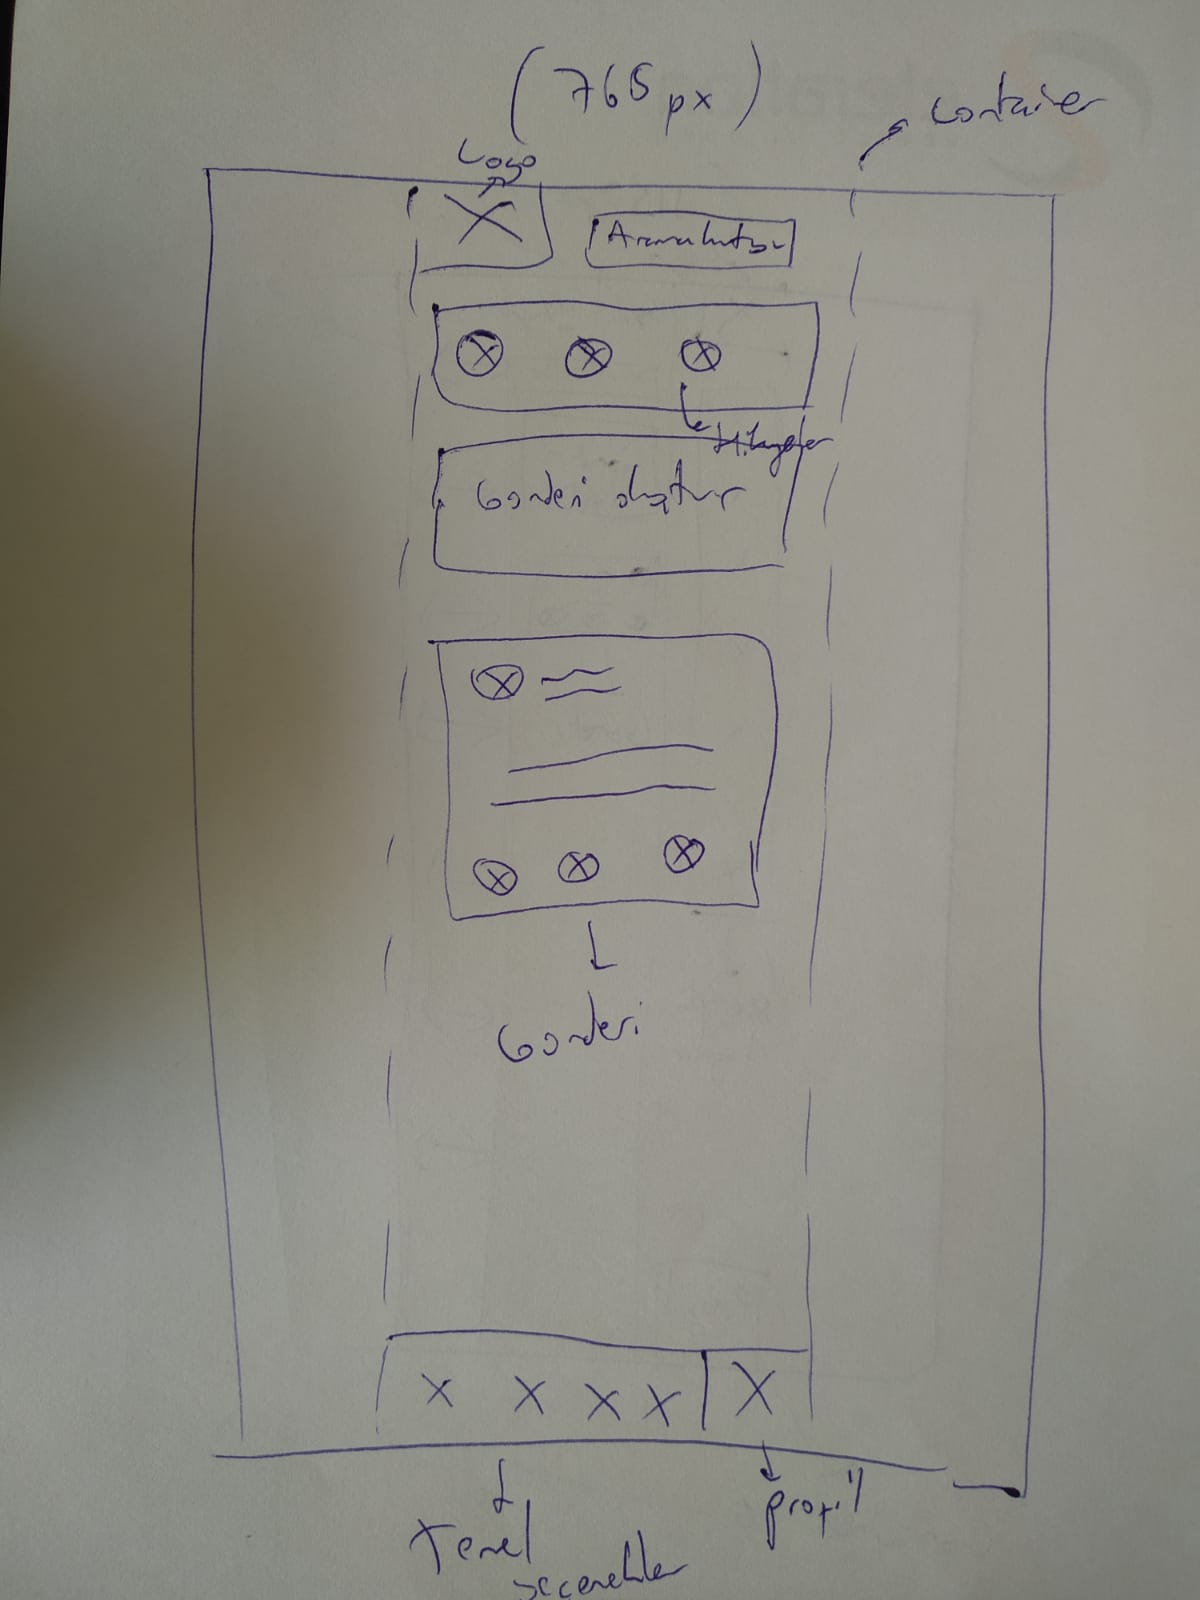 (768px)
Container
Logo
Arama kutusu
Hikayeler
Gönderi oluştur
Gönderi
profil
Temel
seçenekler